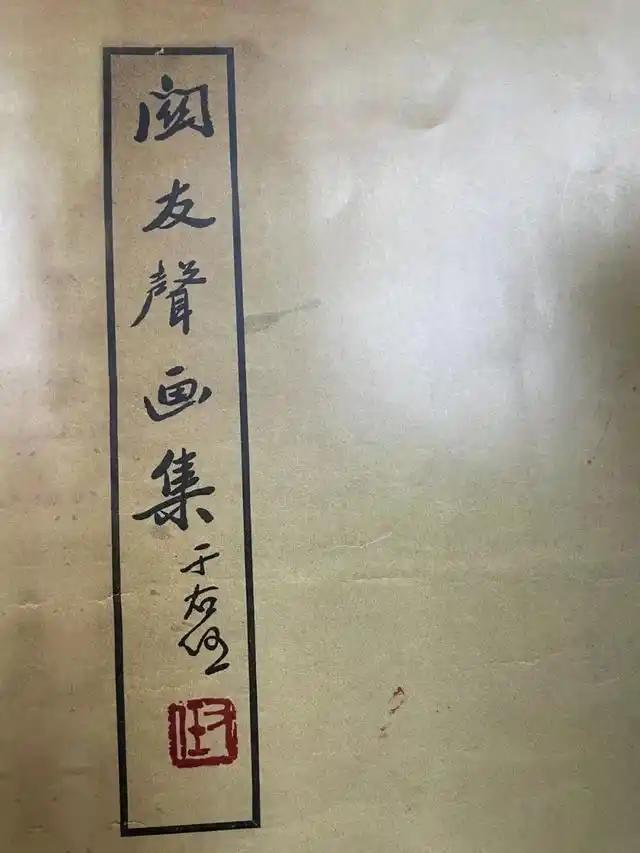 關友聲画集
于右任